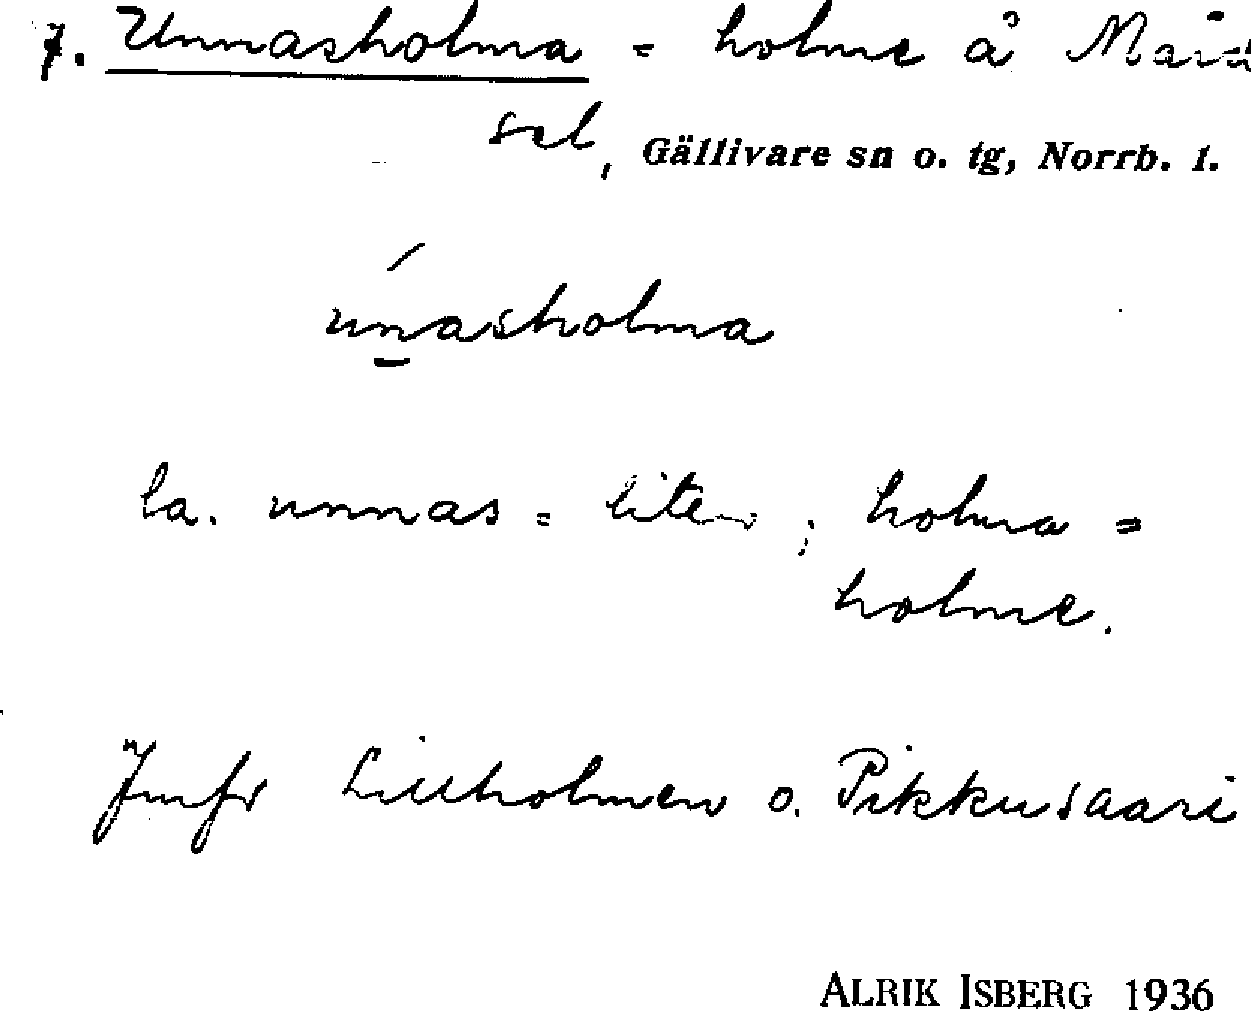 7. Unnasholma = holme å
sel, Gällivare sn o. tg, Norrb. l.
unasholma
la. unnas = liten ; holma =
holme.
Jmfr Lillholmen o. Pikkusaari
ALRIK ISBERG 1936